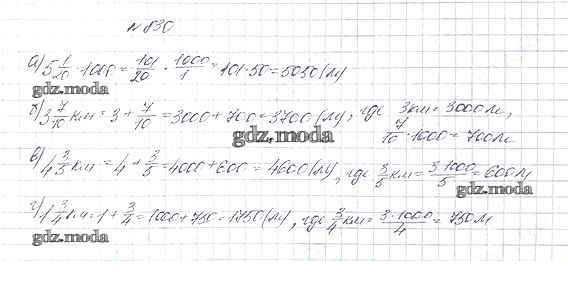 №830
а) 5 1/20 · 1000 = 101/20 · 1000/1 = 101·50 = 5050 (м)
gdz.moda
б) 3 7/10 км = 3 + 7/10 = 3000 + 700 = 3700 (м), где 3км = 3000м,
7/10 · 1000 = 700м
gdz.moda
в) 4 3/5 км = 4 + 3/5 = 4000 + 600 = 4600 (м), где 3/5 км = 3·1000/5 = 600м
gdz.moda
г) 1 3/4 км = 1 + 3/4 = 1000 + 750 = 1750 (м), где 3/4 км = 3·1000/4 = 750м
gdz.moda